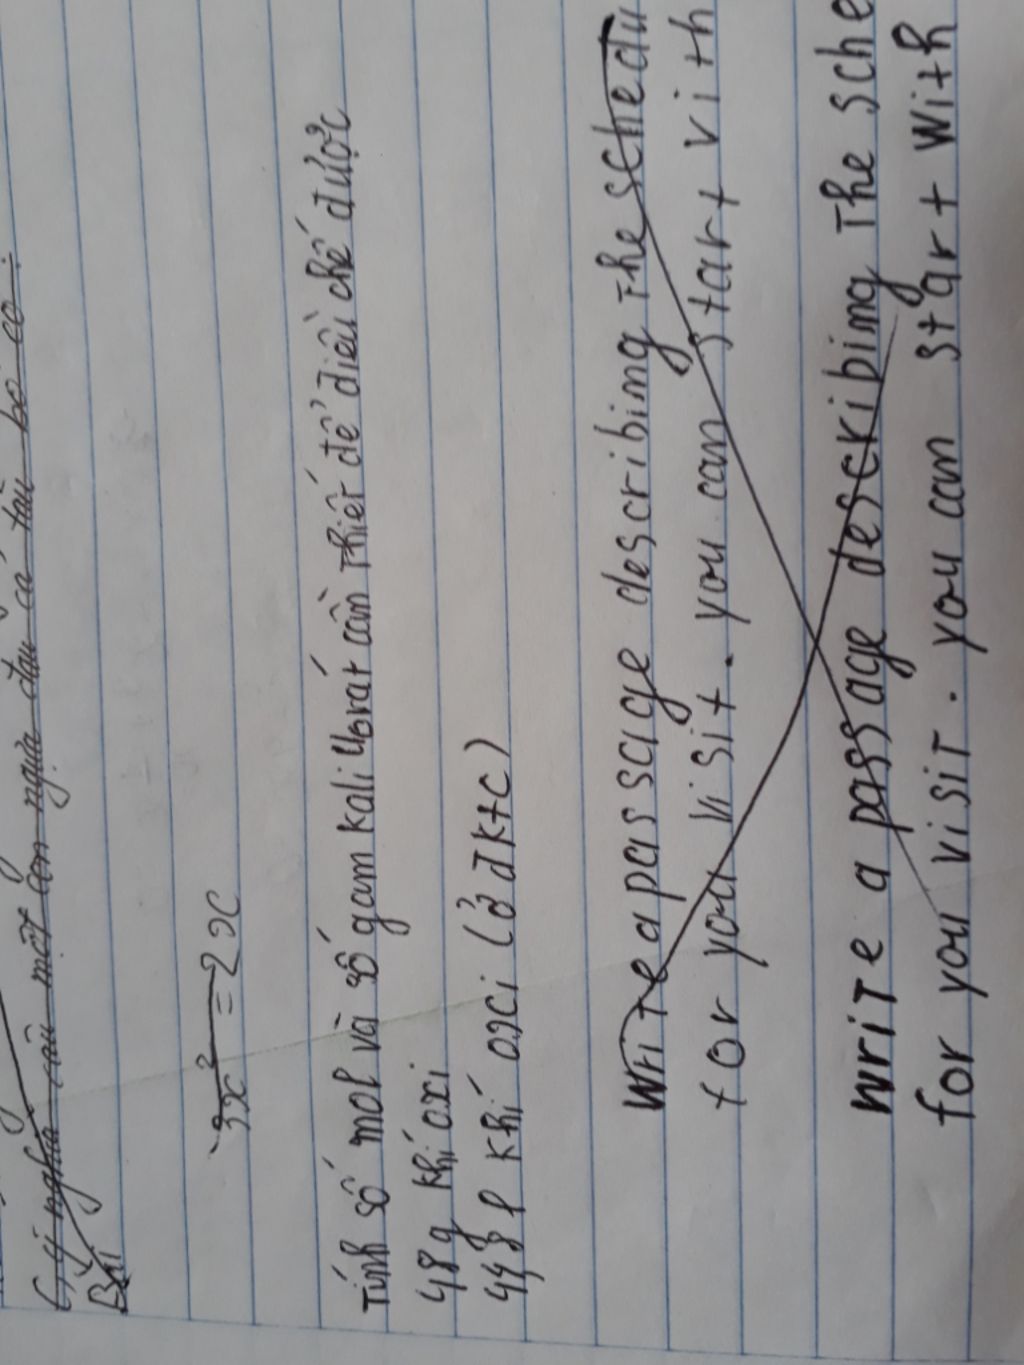 c, ý nghĩa câu một con ngựa đau cả tàu bỏ cỏ:
Bài
3x² = 2x
Tính số mol và số gam kali clorat cần thiết để điều chế được
48g khí oxi
44,8 l khí oxi (ở đktc)
Write a passage describimg the schedu
for you visit. you can start vith
write a passage desckibimg The sche
for you visit. you can start with